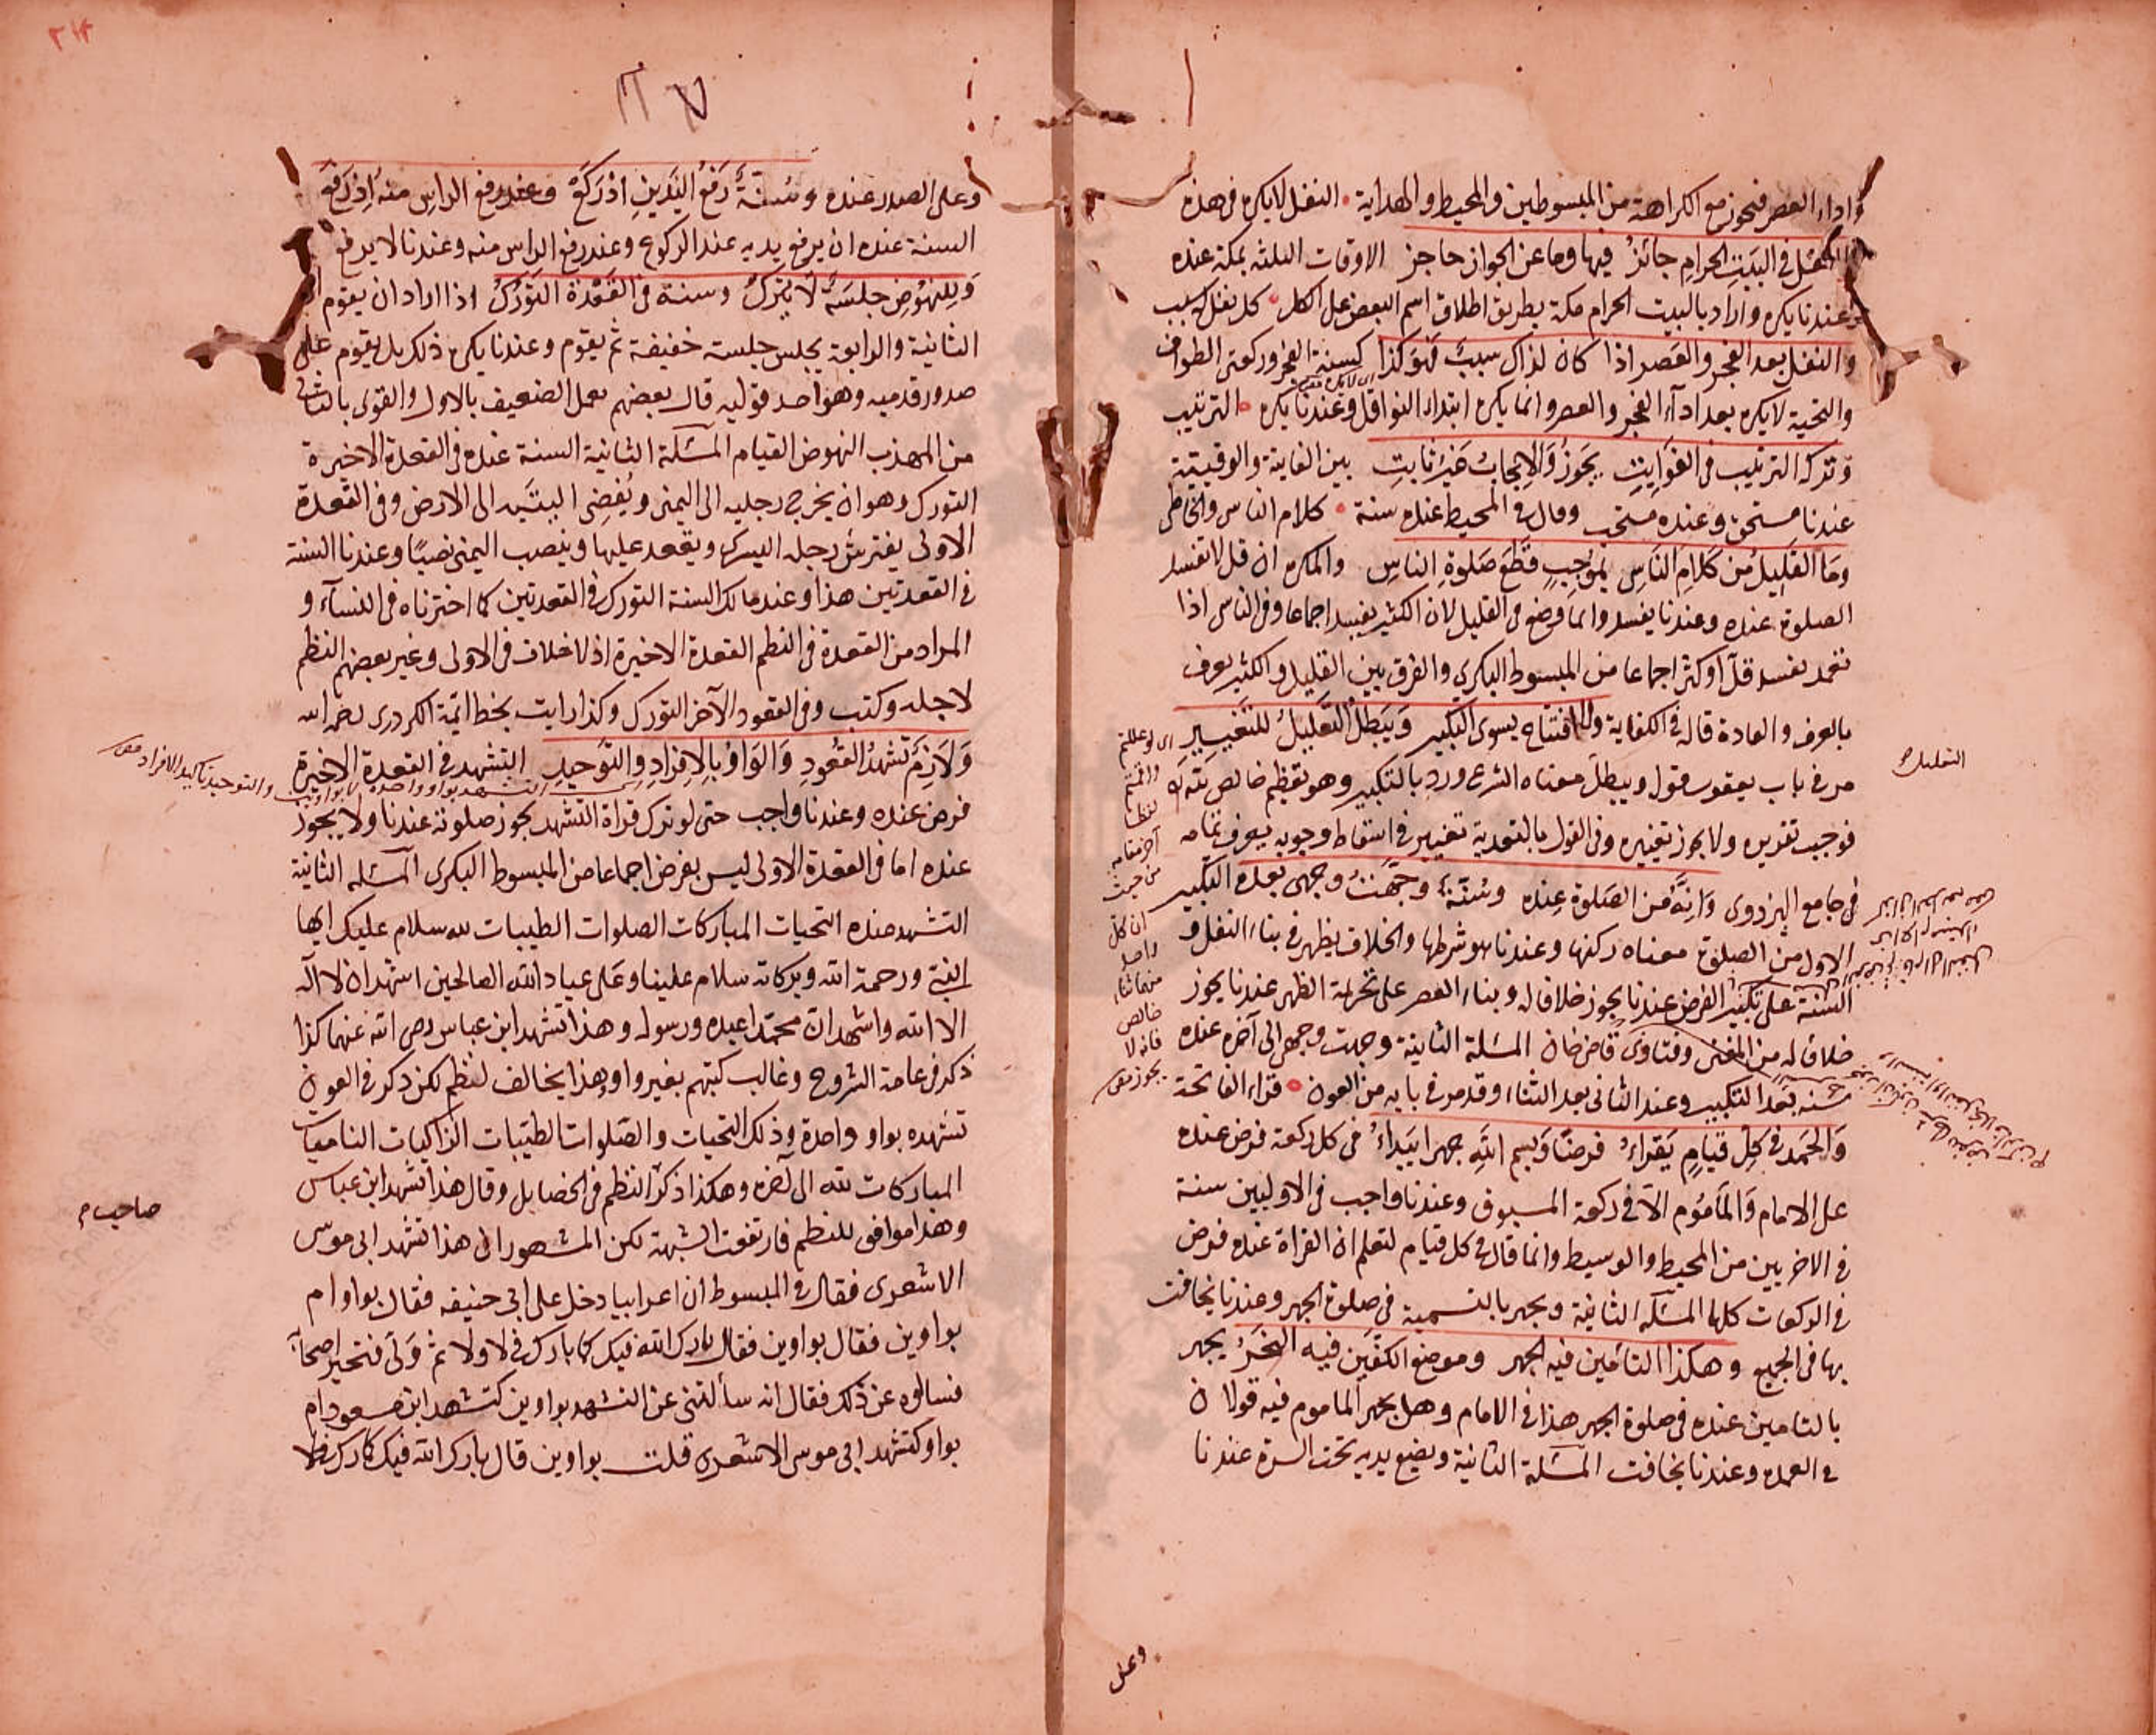 واداء العصر فيجوز مع الكراهة من المبسوطين والمحيط والهداية النفل لايكره في هذه
في البيت الحرام جائز فيها وما عن الجواز حاجز الاوقات الثلثه بمكة عنده
وعندنا يكره واراد بالبيت الحرام مكة بطريق اطلاق اسم البعض على الكل كل نفل له سبب
والنفل بعد الفجر والعصر اذا كان لذاك سبب فهو كذا كسنة الفجر وركعتي الطواف
والتحية لايكره بعد اداء الفجر والعصر وانما يكره ابتداء النوافل وعندنا يكره الترتيب
وتركه الترتيب في الفوايت يجوز والايجاب غير ثابت بين الفايتة والوقتية
عندنا مستحق وعنده مستحب وقال في المحيط عنده سنة كلام الناس والخاطي
وما القليل من كلام الناس بموجب قطع صلوة الناس والمكره ان قل لا تفسد
الصلوة عنده وعندنا يفسد وانما وضع في القليل لان الكثير يفسد اجماعا وفي الناسي اذا
تعمد تفسد قل او كثر اجماعا من المبسوط البكري والفرق بين القليل والكثير يعرف
بالعرف والعادة قاله في الكفاية ولا افتتاح بسوى التكبير ويبطل التعليل للتغيير
مر في باب يعقوب قوله ويبطل معناه الشرع ورد بالتكبير وهو تعظيم خالص لله
فوجب تقريره ولا يجوز تغييره وفي القول بالتعدية تغيير في اسقاط وجوبه يعرف تمامه
في جامع البزدوي وانه من الصلوة عنده وسنة وجهت وجهي بعده التكبير
الاول من الصلوة معناه ركنها وعندنا هو شرطها والخلاف يظهر في بناء النفل و
السنة على تكبير الفرض عندنا يجوز خلافا له وبناء العصر على تحريمة الظهر عندنا يجوز
خلافا له من المغني وفتاوى قاضي خان المسئلة الثانية وجهت وجهي الى آخره عنده
سنه بعد التكبير وعند الثاني بعد الثناء وقد مر في بابه من العون قراءة الفاتحة
والحمد في كل قيام يقراء فرضا وبسم الله جهرا يبداء في كل ركعة فرض عنده
على الامام والمأموم الا في ركعة المسبوق وعندنا واجب في الاوليين سنة
في الاخريين من المحيط والوسيط وانما قال في كل قيام لتعلم ان القراة عنده فرض
في الركعات كلها المسئلة الثانية ويجهر بالتسمية في صلوة الجهر وعندنا يخافت
بها في الجميع وهكذا التامين فيه الجهر وموضع الكفين فيه النحر يجهر
بالتامين عنده في صلوة الجهر هذا في الامام وهل يجهر الماموم فيه قولان
في العمده وعندنا يخافت المسئلة الثانية ويضع يديه تحت السرة عندنا
وعلى
التعليل
اى لو عللتم
لفظا
آخر مقامه
من حيث
ان كل
واحد
منهما ثناء
خالص
فانه لا
يجوز
وعلى الصدر عنده وسنة رفع اليدين اذ ركع وعند رفع الراس منه اذ رفع
السنة عنده ان يرفع يديه عند الركوع وعند رفع الراس منه وعندنا لا يرفع
وللنهوض جلسة لا يترك وسنة في القعدة التورك اذا اراد ان يقوم
الثانية والرابعة يجلس جلسة خفيفة ثم يقوم وعندنا يكره ذلك بل يقوم على
صدور قدميه وهو احد قوليه قال بعضهم يعمل الضعيف بالاول والقوى بالثاني
من المهذب النهوض القيام المسئلة الثانية السنة عنده في القعدة الاخيرة
التورك وهو ان يخرج رجليه الى اليمنى ويفضى اليتيه الى الارض وفي القعدة
الاولى يفترش رجله اليسرى ويقعد عليها وينصب اليمنى نصبا وعندنا السنة
في القعدتين هذا وعند مالك السنة التورك في القعدتين كما اخترناه في النساء و
المراد من القعدة في النظم القعدة الاخيرة اذ لا خلاف في الاولى وغير بعضهم النظم
لاجله وكتب وفي القعود الآخر التورك وكذا رايت بخط ائمة الكردرى رحمه الله
ولازم تشهد القعود والواو بالافراد والتوحيد التشهد في القعدة الاخيرة
والتوحيد تاكيد الافراد
فرض عنده وعندنا واجب حتى لو ترك قراة التشهد يجوز صلوته عندنا ولا يجوز
عنده اما في القعدة الاولى ليس بفرض اجماعا من المبسوط البكرى المسئله الثانية
التشهد عنده التحيات المباركات الصلوات الطيبات لله سلام عليك ايها
النبي ورحمة الله وبركاته سلام علينا وعلى عباد الله الصالحين اشهد ان لا اله
الا الله واشهد ان محمدا عبده ورسوله وهذا تشهد ابن عباس رضى الله عنهما كذا
ذكر في عامة الشروح وغالب كتبهم بغير واو وهذا يخالف لنظم لكن ذكر في العون
تشهده بواو واحدة وذلك التحيات والصلوات الطيبات الزاكيات الناميات
المباركات لله الى آخره وهكذا ذكر النظم في الخصايل وقال هذا تشهد ابن عباس
صاحب
وهذا موافق للنظم فارتفعت الشبهة لكن المشهور ان هذا تشهد ابى موسى
الاشعرى فقال في المبسوط ان اعرابيا دخل على ابى حنيفه فقال بواو ام
بواوين فقال بواوين فقال بارك الله فيك كما بارك في لا ولا ثم ولى فتحير اصحابه
فسالوه عن ذلك فقال انه سألتنى عن التشهد بواوين كتشهد ابن مسعود ام
بواو كتشهد ابى موسى الاشعرى قلت بواوين قال بارك الله فيك كما بارك في لا